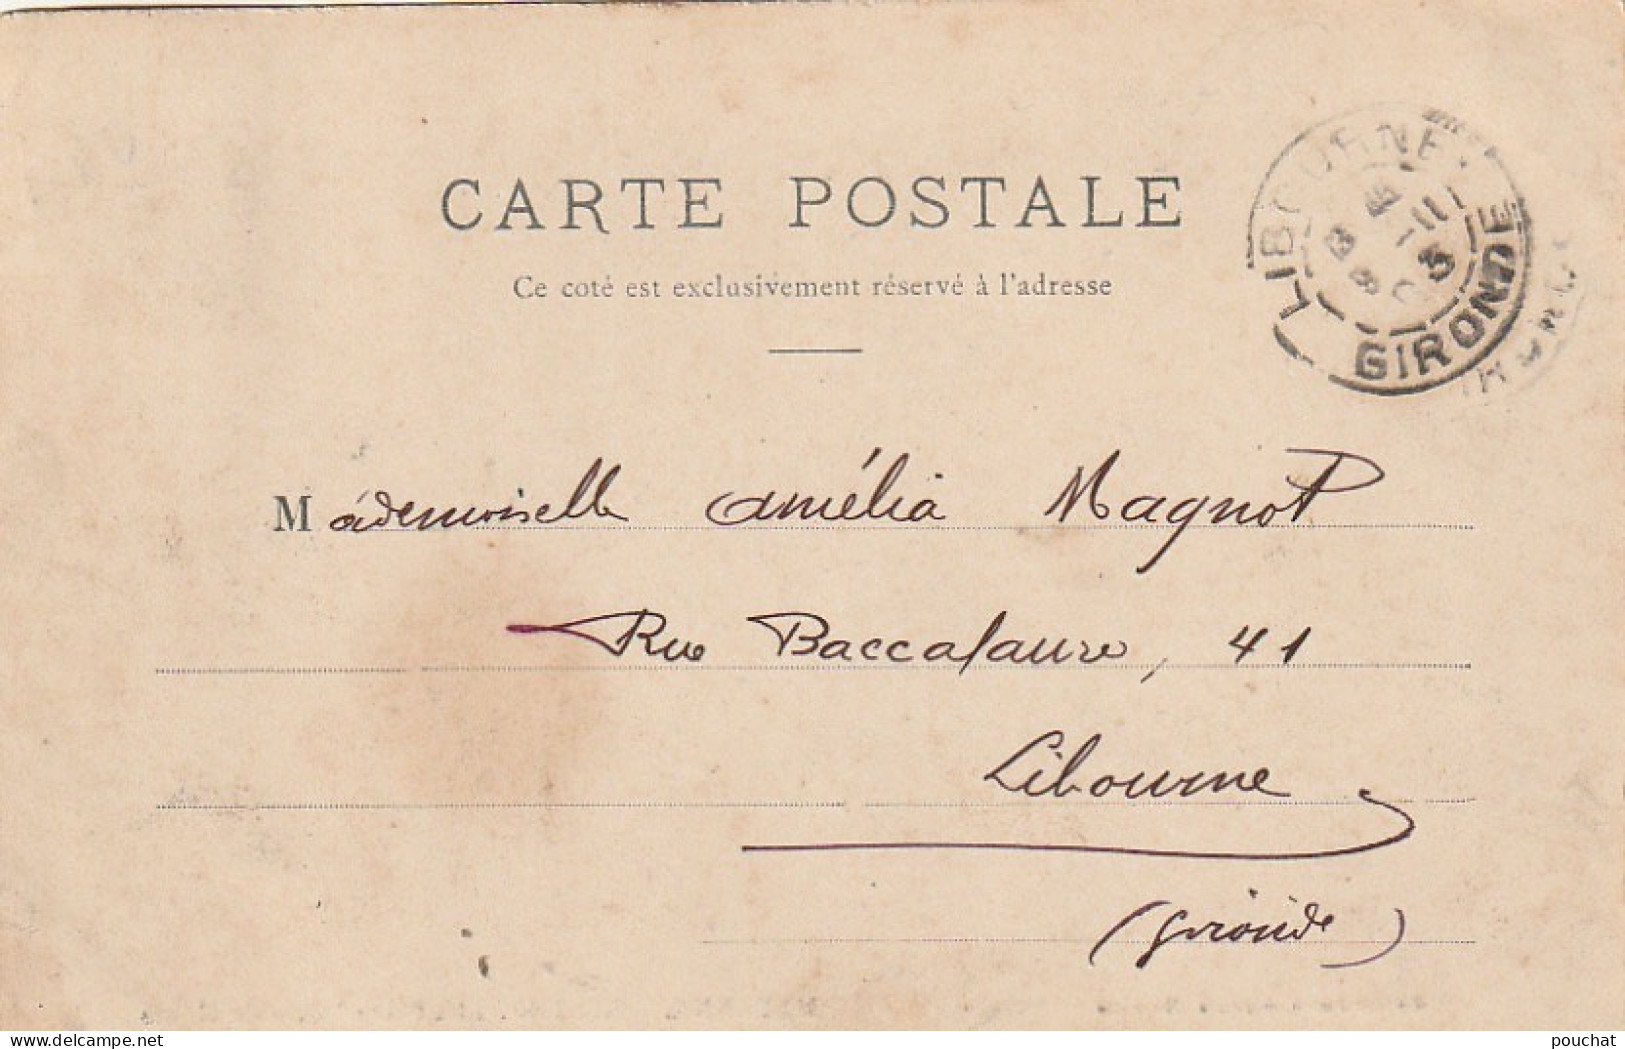 CARTE POSTALE
Ce coté est exclusivement réservé à l'adresse
LIBOURNE
GIRONDE
Mademoiselle Amélia Magnot
Rue Baccalaure, 41
Libourne
(Gironde)
www.delcampe.net
pouchat